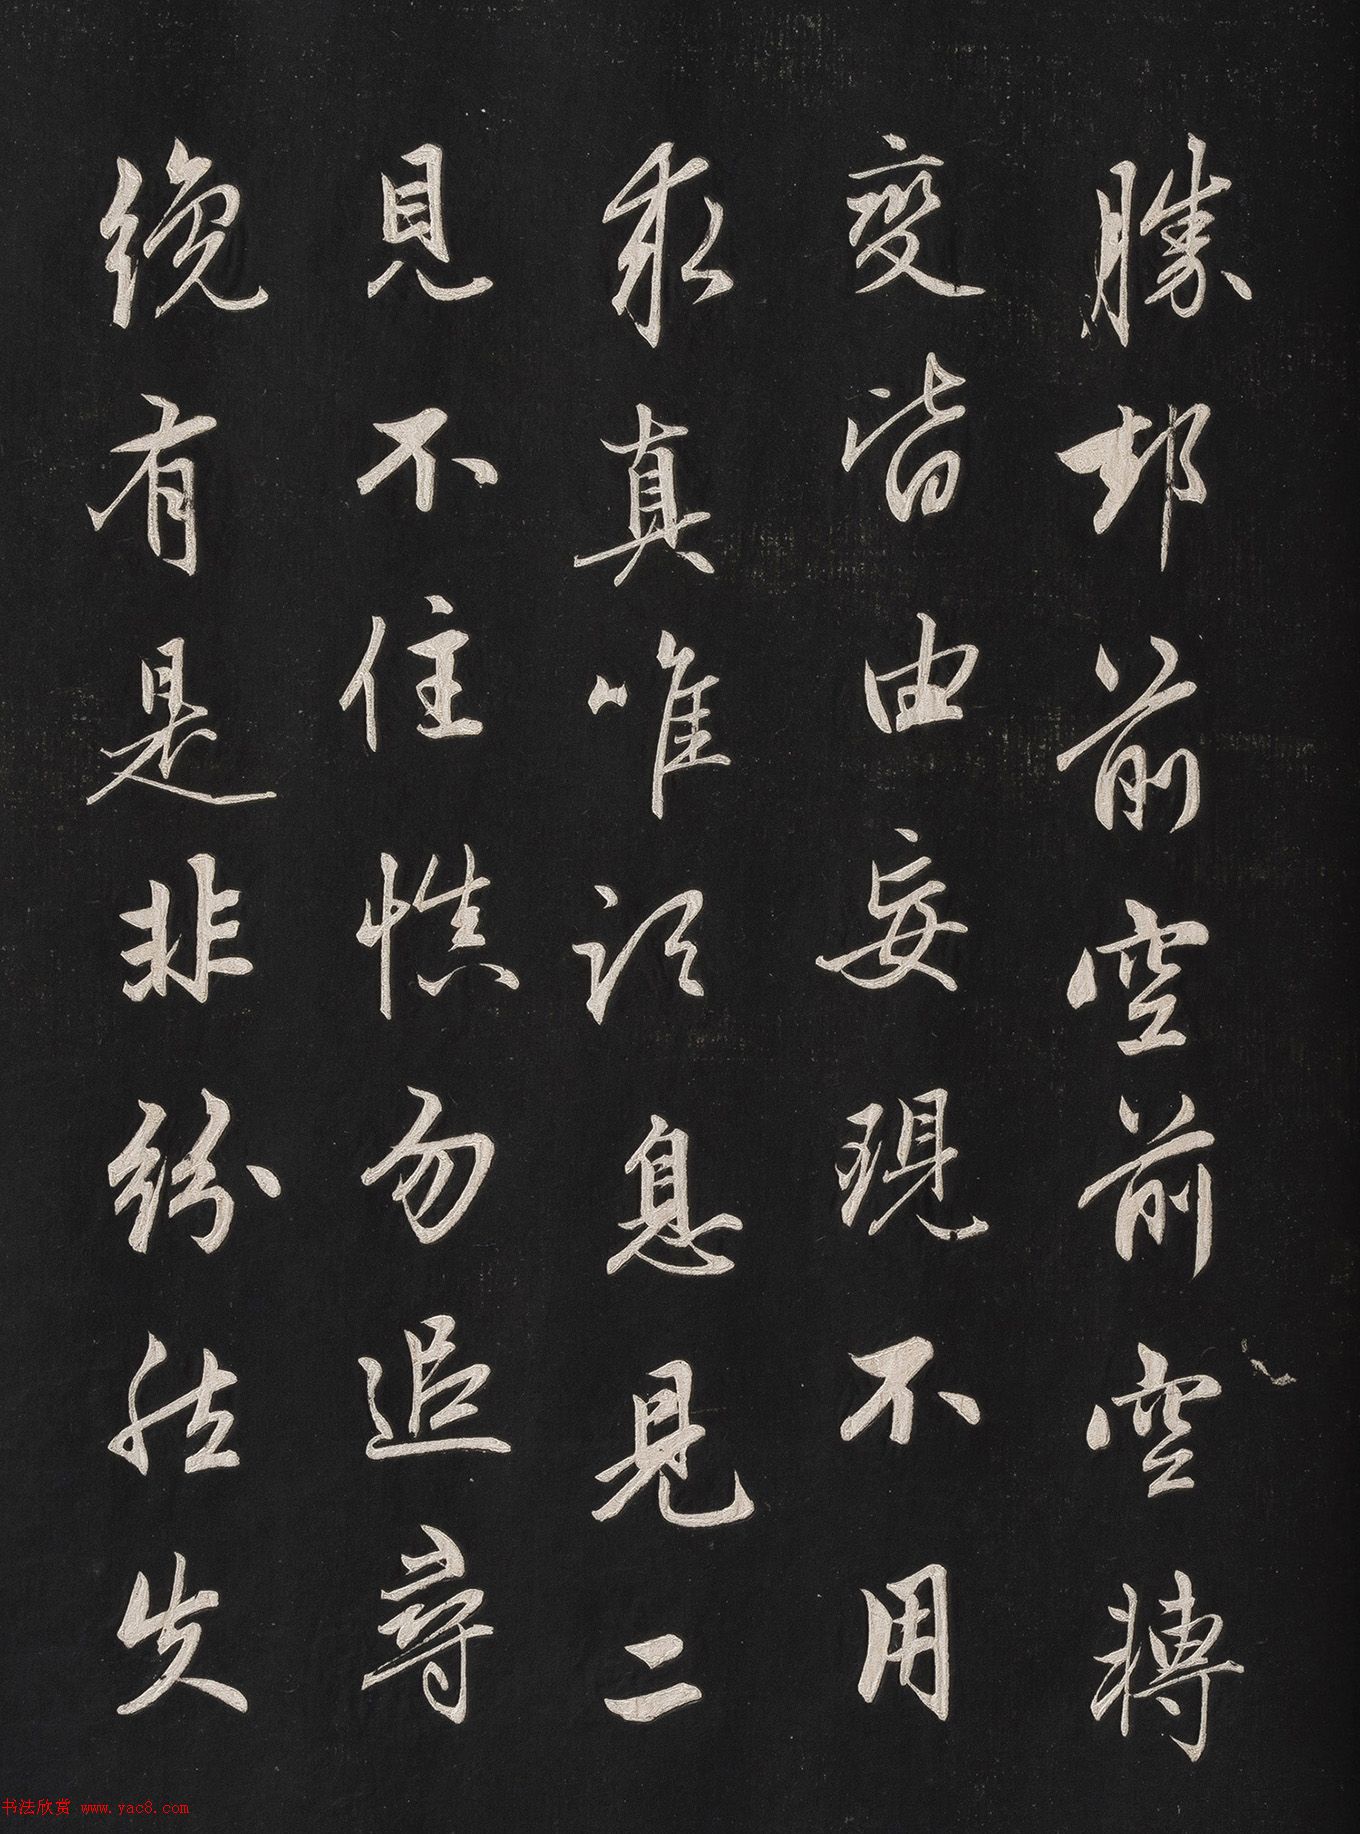 勝却前空前空轉
變皆由妄現不用
求真唯須息見二
見不住慎勿追尋
纔有是非紛然失
书法欣赏 www.yac8.com